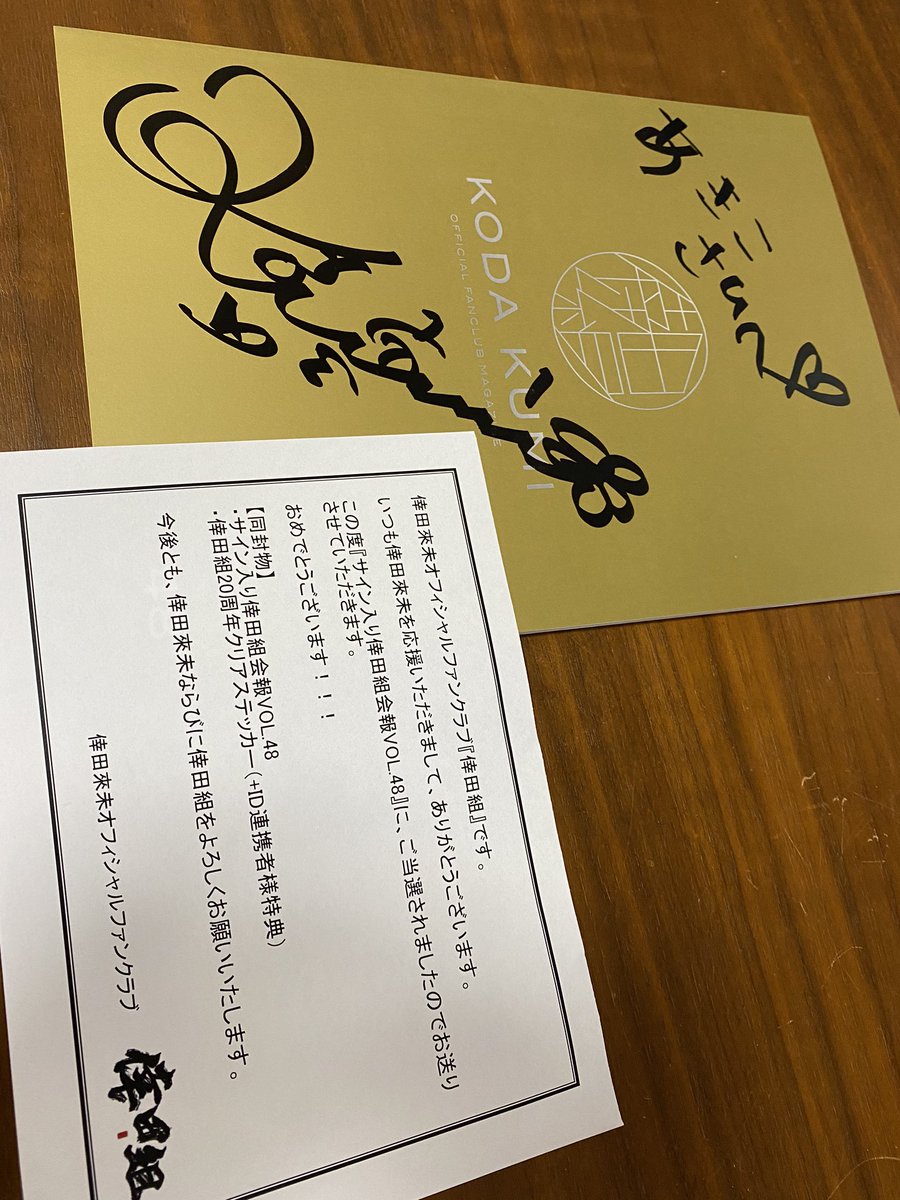 あきこさんへ
KODA KUMI
OFFICIAL FANCLUB MAGAZINE
倖田來未オフィシャルファンクラブ『倖田組』です。
いつも倖田來未を応援いただきまして、ありがとうございます。
この度『サイン入り倖田組会報VOL.48』に、ご当選されましたのでお送り
させていただきます。
おめでとうございます！！！
【同封物】
・サイン入り倖田組会報VOL.48
・倖田組20周年クリアステッカー（+ID連携者様特典）
今後とも、倖田來未ならびに倖田組をよろしくお願いいたします。
倖田來未オフィシャルファンクラブ
倖田組